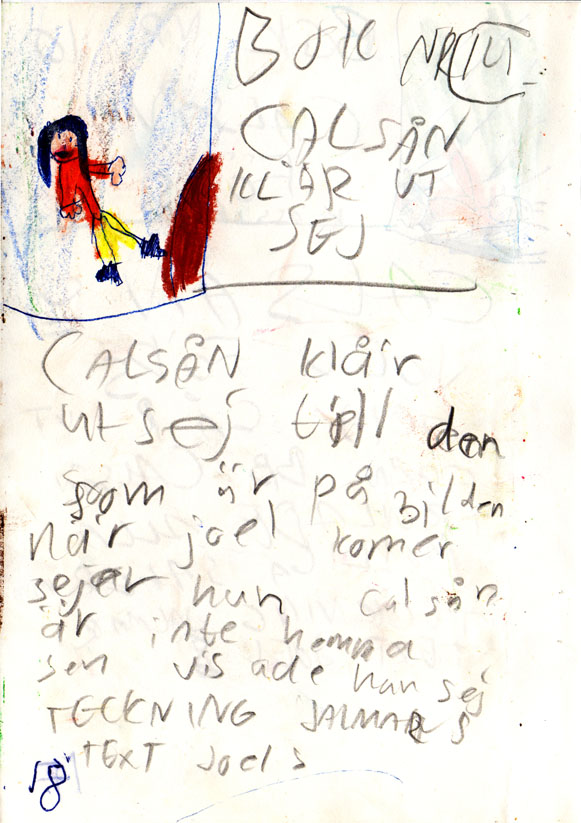 BOK
CALSÅN
KLÄR UT
SEJ
CALSÅN klåir
ut sej till den
som är på bilden
när joel komer
sejer hun calsån
är inte hemma
sen visade han sej
TECKNING JALMARS
TEXT Joels
18